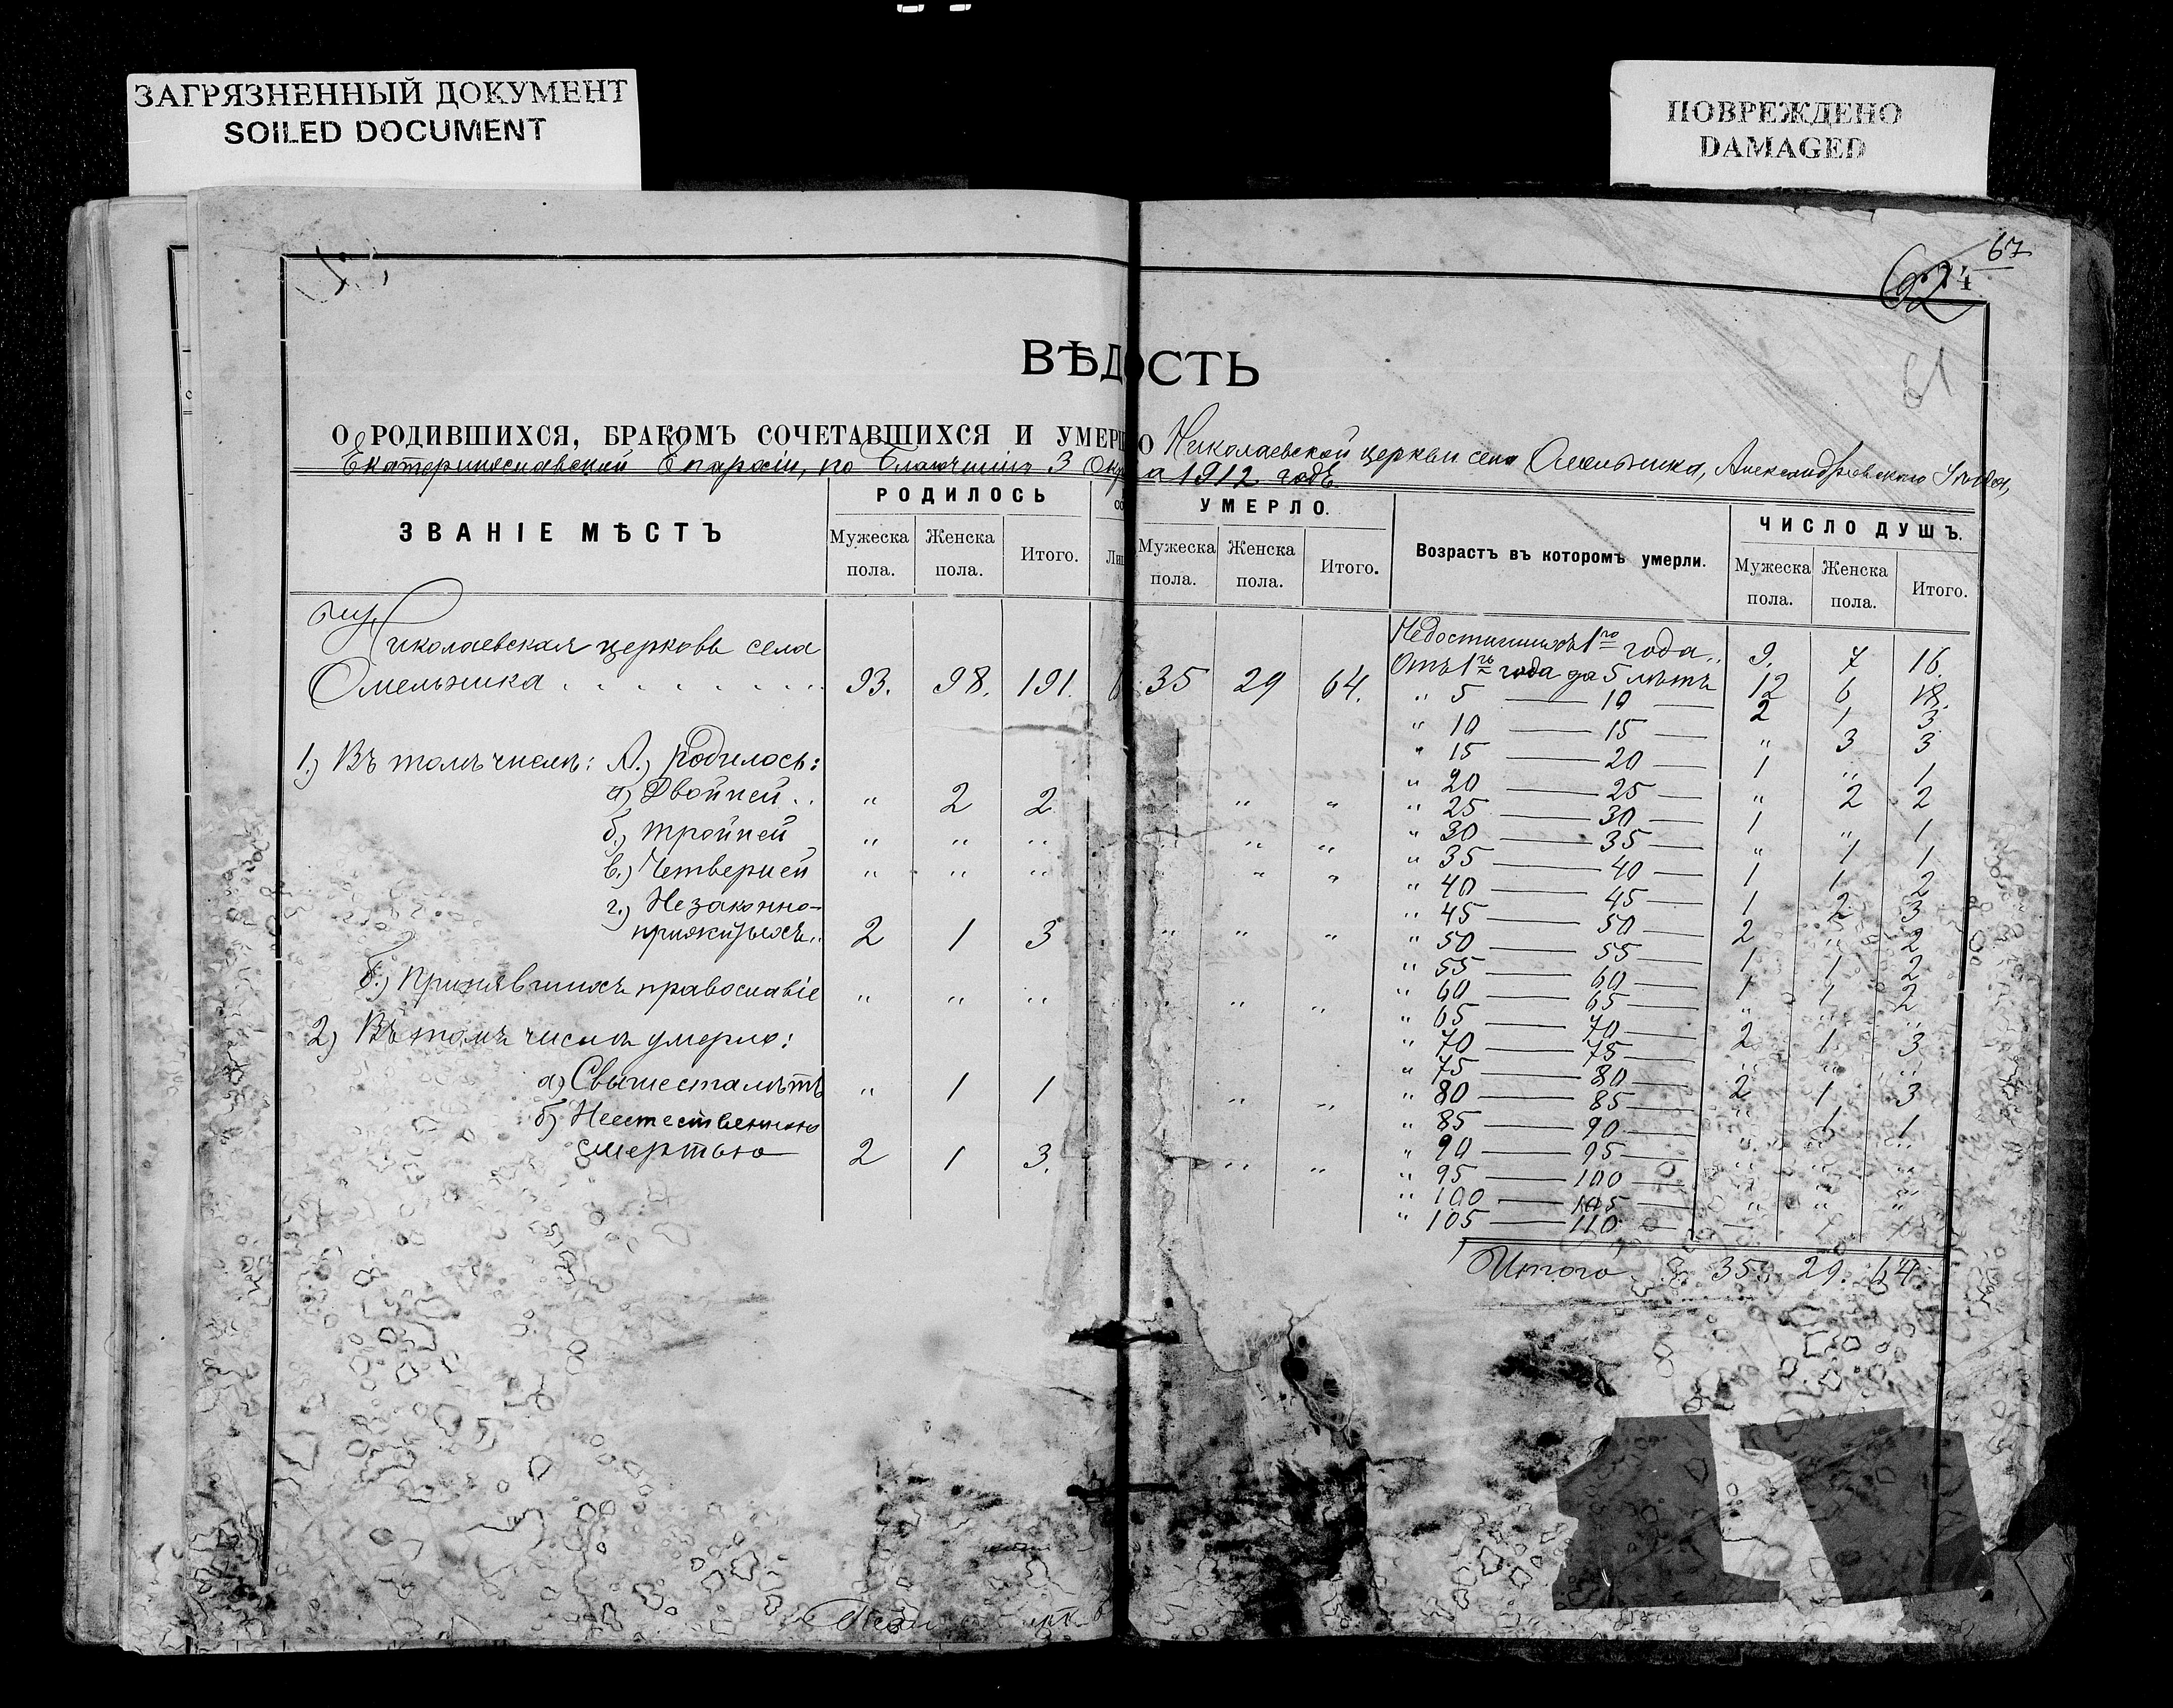 ЗАГРЯЗНЕННЫЙ ДОКУМЕНТ
SOILED DOCUMENT
ПОВРЕЖДЕНО
DAMAGED
67
61
ВѢД ОСТЬ
О РОДИВШИХСЯ, БРАКОМЪ СОЧЕТАВШИХСЯ И УМЕР О Николаевской церкви села Омельника, Александровскаго Уѣзда,
Екатеринославской Епархіи, по Благочинію 3 Окр а 1912 годъ
ЗВАНІЕ МѢСТЪ
РОДИЛОСЬ
Мужеска пола.
Женска пола.
Итого.
УМЕРЛО.
Мужеска пола.
Женска пола.
Итого.
Возрастъ въ которомъ умерли.
ЧИСЛО ДУШЪ.
Мужеска пола.
Женска пола.
Итого.
Николаевская церковь села
Омельника . . . . . . . . 93. 98. 191. 35 29 64.
1.) Въ томъ числѣ: А.) родилось:
а) Двойней .. " 2 2 " "
б.) тройней " " " " "
в.) Четверней " " " " "
г.) Незаконно-
прижитыхъ.. 2 1 3 " " "
Б.) Принявшихъ православіе " " " " "
2) Въ томъ числѣ умерло:
а) Свыше ста лѣтъ " 1 1 " "
б) Неестественною
смертью 2 1 3. " "
Недостигшихъ 1го года.. 9. 7 16.
Отъ 1го года до 5 лѣтъ 12 6 18.
" 5 — 10 — 2 1 3
" 10 — 15 — " 3 3
" 15 — 20 — 1 " 1
" 20 — 25 — " 2 2
" 25 — 30 — 1 " 1
" 30 — 35 — " 1 1
" 35 — 40 — 1 1 2
" 40 — 45 — 1 2 3
" 45 — 50 — 2 " 2
" 50 — 55 — 1 1 2
" 55 — 60 — 1 1 2
" 60 — 65 — " " "
" 65 — 70 — 2 1 3
" 70 — 75 — " " "
" 75 — 80 — 2 1 3
" 80 — 85 — " 1 1
" 85 — 90 — " " "
" 90 — 95 — " " "
" 95 — 100 — " " "
" 100 — 105 — " " "
" 105 — 110 — 1 1
Итого 35. 29. 64.